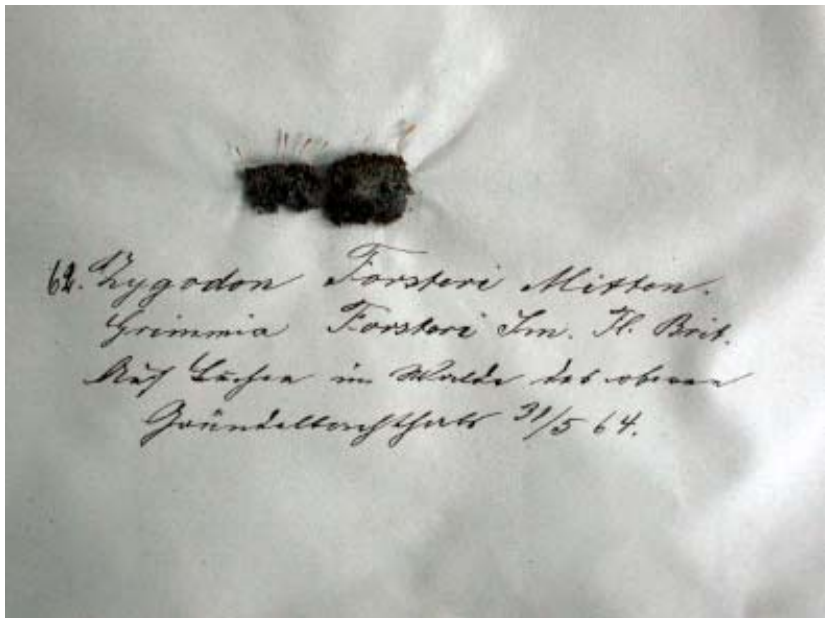 62. Zygodon Forsteri Mitten.
Grimmia Forsteri Sm. Fl. Brit.
Auf Buchen im Walde des oberen
Gründelbachthals 31/5 64.